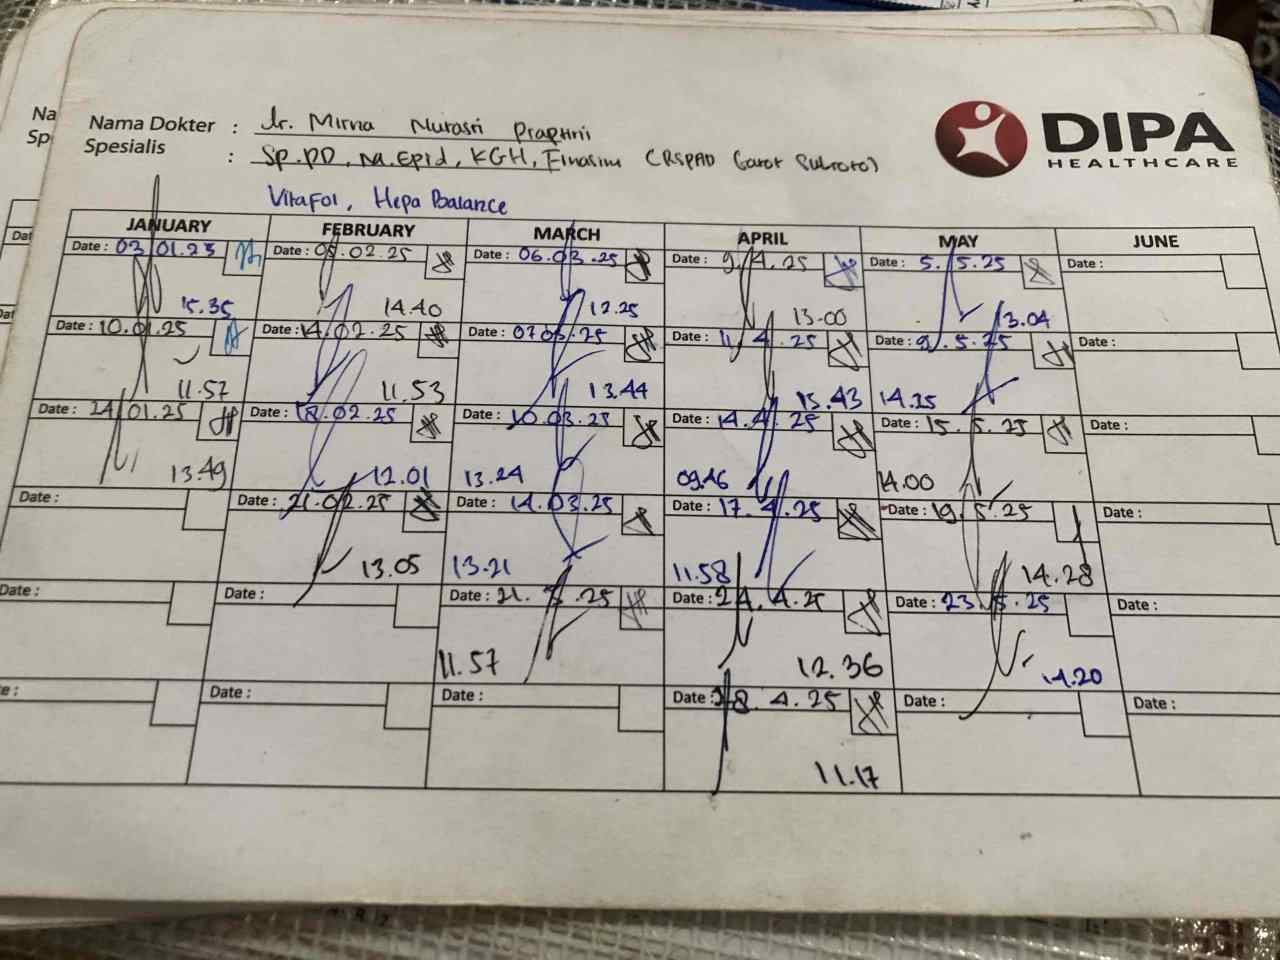 Na
Sp
Nama Dokter : dr. Mirna Nurasri Praptini
Spesialis : Sp.PD, Na.Epid, KGH, Finasim (RSPAD Gatot Subroto)
DIPA
HEALTHCARE
Vitafol, Hepa Balance
JANUARY FEBRUARY MARCH APRIL MAY JUNE
Date : 03.01.25 Date : 05.02.25 Date : 06.03.25 Date : 9.4.25 Date : 5.5.25 Date :
15.35 14.40 12.25 13.00 13.04
Date : 10.01.25 Date : 14.02.25 Date : 07.03.25 Date : 11.4.25 Date : 9.5.25 Date :
11.57 11.53 13.44 13.43 14.25
Date : 24.01.25 Date : 18.02.25 Date : 10.03.25 Date : 14.4.25 Date : 15.5.25 Date :
13.49 12.01 13.24 09.46 14.00
Date : Date : 21.02.25 Date : 14.03.25 Date : 17.4.25 Date : 19.5.25 Date :
13.05 13.21 11.58 14.28
Date : Date : Date : 21.3.25 Date : 24.4.25 Date : 23.5.25 Date :
11.57 12.36 14.20
Date : Date : Date : 28.4.25 Date : Date :
11.17